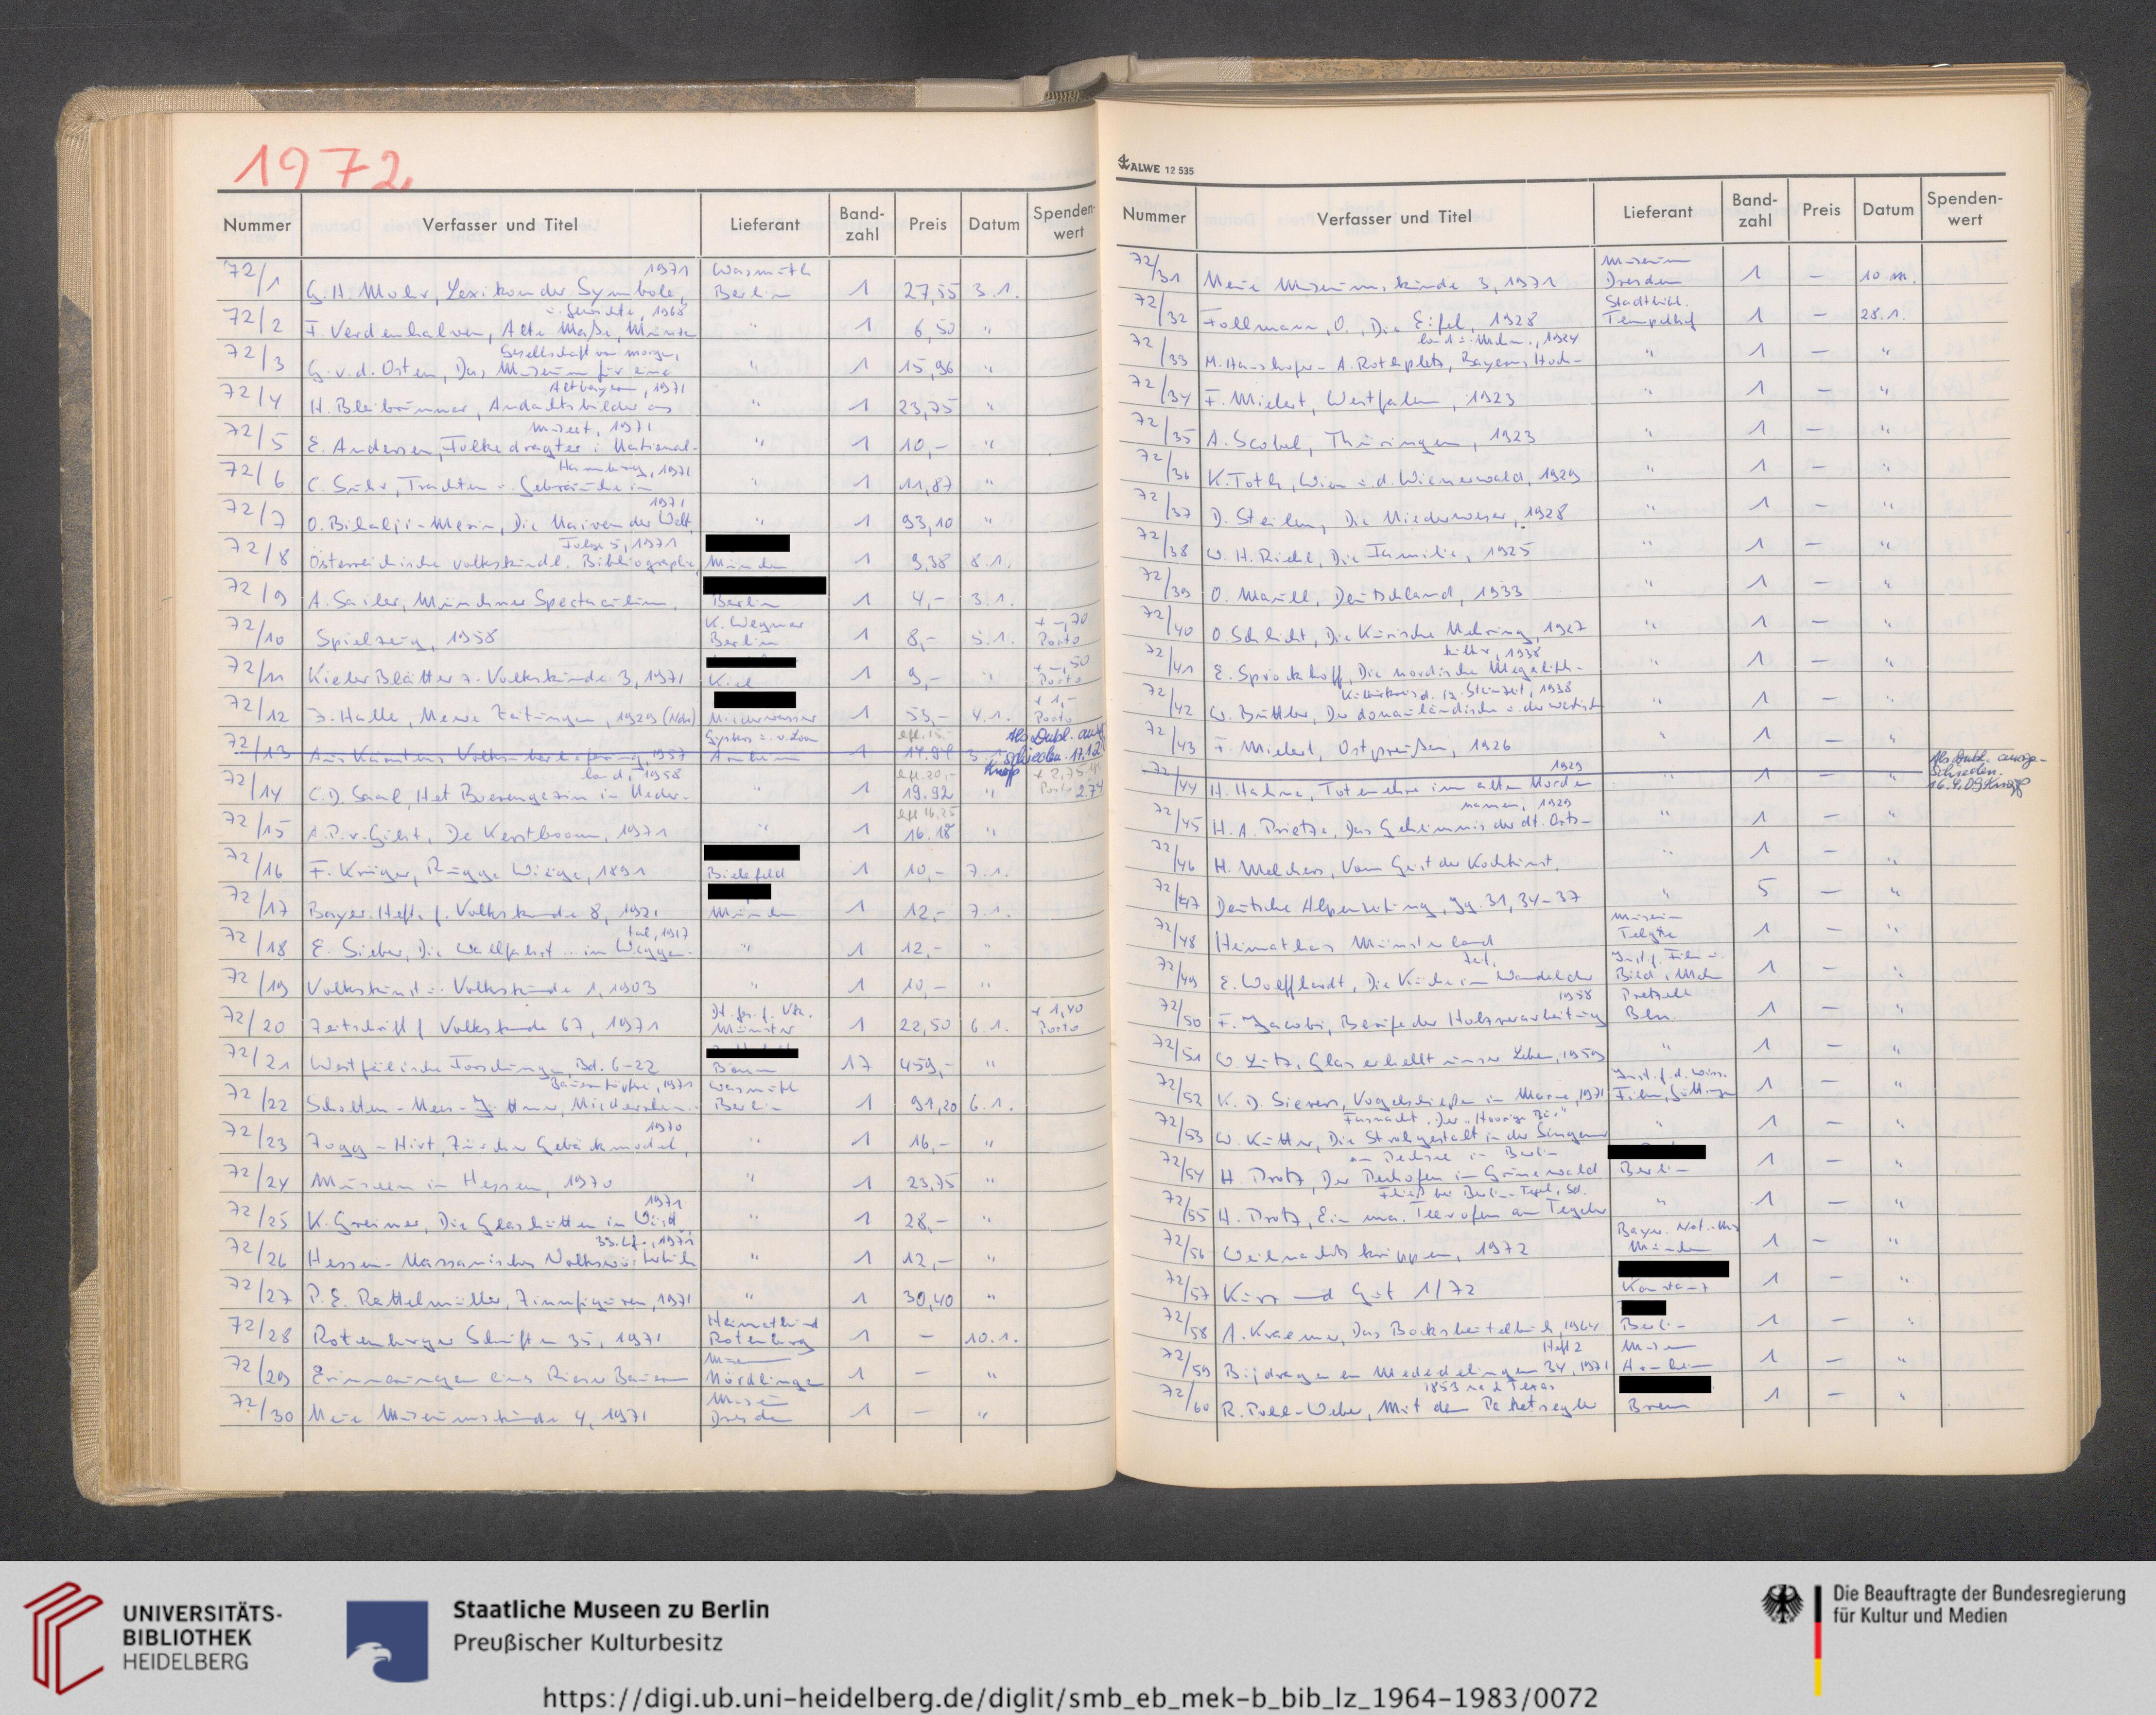 1972
Nummer Verfasser und Titel Lieferant Band-zahl Preis Datum Spenden-wert
72/1 G. H. Mohr, Lexikon der Symbole, 1971 Wasmuth Berlin 1 27,55 3.1.
72/2 F. Verdenhalven, Alte Maße, Münzen u. Gewichte, 1968 " 1 6,50 "
72/3 G. v. d. Osten, Das Museum für eine Gesellschaft von morgen, " 1 15,96 "
72/4 H. Bleibrunner, Andachtsbilder aus Altbayern, 1971 " 1 23,75 "
72/5 E. Andersen, Folkedragter i National-museet, 1971 " 1 10,- "
72/6 C. Suhr, Trachten u. Gebräuche in Hamburg, 1971 " 1 11,87 "
72/7 O. Bihalji-Merin, Die Naiven der Welt, 1971 " 1 93,10 "
72/8 Österreichische volkskundl. Bibliographie, Folge 5, 1971 München 1 9,38 8.1.
72/9 A. Sailer, Münchner Spectaculum, Berlin 1 4,- 3.1.
72/10 Spielzeug, 1958 K. Wegner Berlin 1 8,- 5.1. + -,70 Porto
72/11 Kieler Blätter z. Volkskunde 3, 1971 Kiel 1 9,- " + -,50 Porto
72/12 J. Halle, Newe Zeitungen, 1929 (Ndr) 1 53,- 4.1. + 1,- Porto
72/13 Aus Kärntens Volksüberlieferung, 1957 Gysbers u. v. Loon Arnhem 1 14.94 3.1. Als Dubl. ausgeschieden. 17.12. Knopp
72/14 C. D. Saal, Het Boerengezin in Neder-land, 1958 " 1 19.92 " Porto 2.74
72/15 A. P. v. Gilst, De Kerstboom, 1971 " 1 16.18 "
72/16 F. Krüger, Rügge Wiege, 1891 Bielefeld 1 10,- 7.1.
72/17 Bayer. Hefte f. Volkskunde 8, 1971 München 1 12,- 7.1.
72/18 E. Sieber, Die Wallfahrt ... im Weggen-tal, 1917 " 1 12,- "
72/19 Volkskunst u. Volkskunde 1, 1903 " 1 10,- "
72/20 Zeitschrift f. Volkskunde 67, 1971 Dt. Ges. f. Vk. Münster 1 22,50 6.1. + 1,40 Porto
72/21 Westfälische Forschungen, Bd. 6-22 Bonn 17 459,- "
72/22 Scholten-Neess-Jüttner, Niederrhein. Bauerntöpferei, 1971 Wasmuth Berlin 1 91,20 6.1.
72/23 Zogg-Hirt, Zürcher Gebäckmodel, 1970 " 1 16,- "
72/24 Museen in Hessen, 1970 " 1 23,75 "
72/25 K. Greiner, Die Glashütten in Württ., 1971 " 1 28,- "
72/26 Hessen-Nassauisches Volkswörterbuch 39. Lf., 1971 " 1 12,- "
72/27 P. E. Rattelmüller, Zinnfiguren, 1971 " 1 30,40 "
72/28 Rotenburger Schriften 35, 1971 Heimatbund Rotenburg 1 – 10.1.
72/29 Erinnerungen eines Rieser Bauern Nördlingen 1 – "
72/30 Neue Museumskunde 4, 1971 Museum Dresden 1 – "
ALWE 12 535
Nummer Verfasser und Titel Lieferant Band-zahl Preis Datum Spenden-wert
72/31 Neue Museumskunde 3, 1971 Museum Dresden 1 – 10.1.
72/32 Follmann, O., Die Eifel, 1928 Stadtbibl. Tempelhof 1 – 28.1.
72/33 M. Haushofer - A. Rothpletz, Bayerns Hoch-land u. Mchn., 1924 " 1 – "
72/34 F. Mielert, Westfalen, 1923 " 1 – "
72/35 A. Scobel, Thüringen, 1923 " 1 – "
72/36 K. Toth, Wien u. d. Wienerwald, 1929 " 1 – "
72/37 D. Steilen, Die Niederweser, 1928 " 1 – "
72/38 W. H. Riehl, Die Familie, 1925 " 1 – "
72/39 O. Maull, Deutschland, 1933 " 1 – "
72/40 O. Schlicht, Die Kurische Nehrung, 1927 " 1 – "
72/41 E. Sprockhoff, Die nordische Megalith-kultur, 1938 " 1 – "
72/42 W. Buttler, Der donauländische u. der westische Kulturkreis d. jg. Steinzeit, 1938 " 1 – "
72/43 F. Mielert, Ostpreußen, 1926 " 1 – "
72/44 H. Hahne, Totenehre im alten Norden 1929 " 1 – " Als Dubl. ausge-schieden. 16.4.09 Knopp
72/45 H. A. Prietze, Das Geheimnis der dt. Orts-namen, 1929 " 1 – "
72/46 H. Melchers, Vom Geist der Kochkunst, " 1 – "
72/47 Deutsche Alpenzeitung, Jg. 31, 34-37 " 5 – "
72/48 Heimathaus Münsterland Museum Telgte 1 – "
72/49 E. Wolffhardt, Die Küche im Wandel der Zeit, Inst. f. Film u. Bild, Mchn 1 – "
72/50 F. Jacobi, Berufe der Holzverarbeitung 1958 Pretzell Bln. 1 – "
72/51 W. Lutz, Glas erhellt unser Leben, 1959 " 1 – "
72/52 K. D. Sievers, Vogelschießen in Marne, 1971 Inst. f. d. wiss. Film, Göttingen 1 – "
72/53 W. Kutter, Die Strohgestalt in der Singener Fasnacht. Der "Hoorige Bär" " 1 – "
72/54 H. Protz, Der Pechofen im Grunewald am Pechsee in Berlin Berlin 1 – "
72/55 H. Protz, Ein ma. Teerofen am Tegeler Fließ bei Berlin-Tegel, Sd. " 1 – "
72/56 Weihnachtskrippen, 1972 Bayer. Nat.-Mus München 1 – "
72/57 Kurz und Gut 1/72 Konstanz 1 – "
72/58 A. Kraemer, Das Bocksbeutelbuch, 1964 Berlin 1 – "
72/59 Bijdragen en Mededelingen 34, 1971 Heft 2 Museum Arnheim 1 – "
72/60 R. Poll-Weber, Mit dem Paketsegler 1853 nach Texas 1 – "
UNIVERSITÄTS-
BIBLIOTHEK
HEIDELBERG
Staatliche Museen zu Berlin
Preußischer Kulturbesitz
Die Beauftragte der Bundesregierung
für Kultur und Medien
https://digi.ub.uni-heidelberg.de/diglit/smb_eb_mek-b_bib_lz_1964-1983/0072